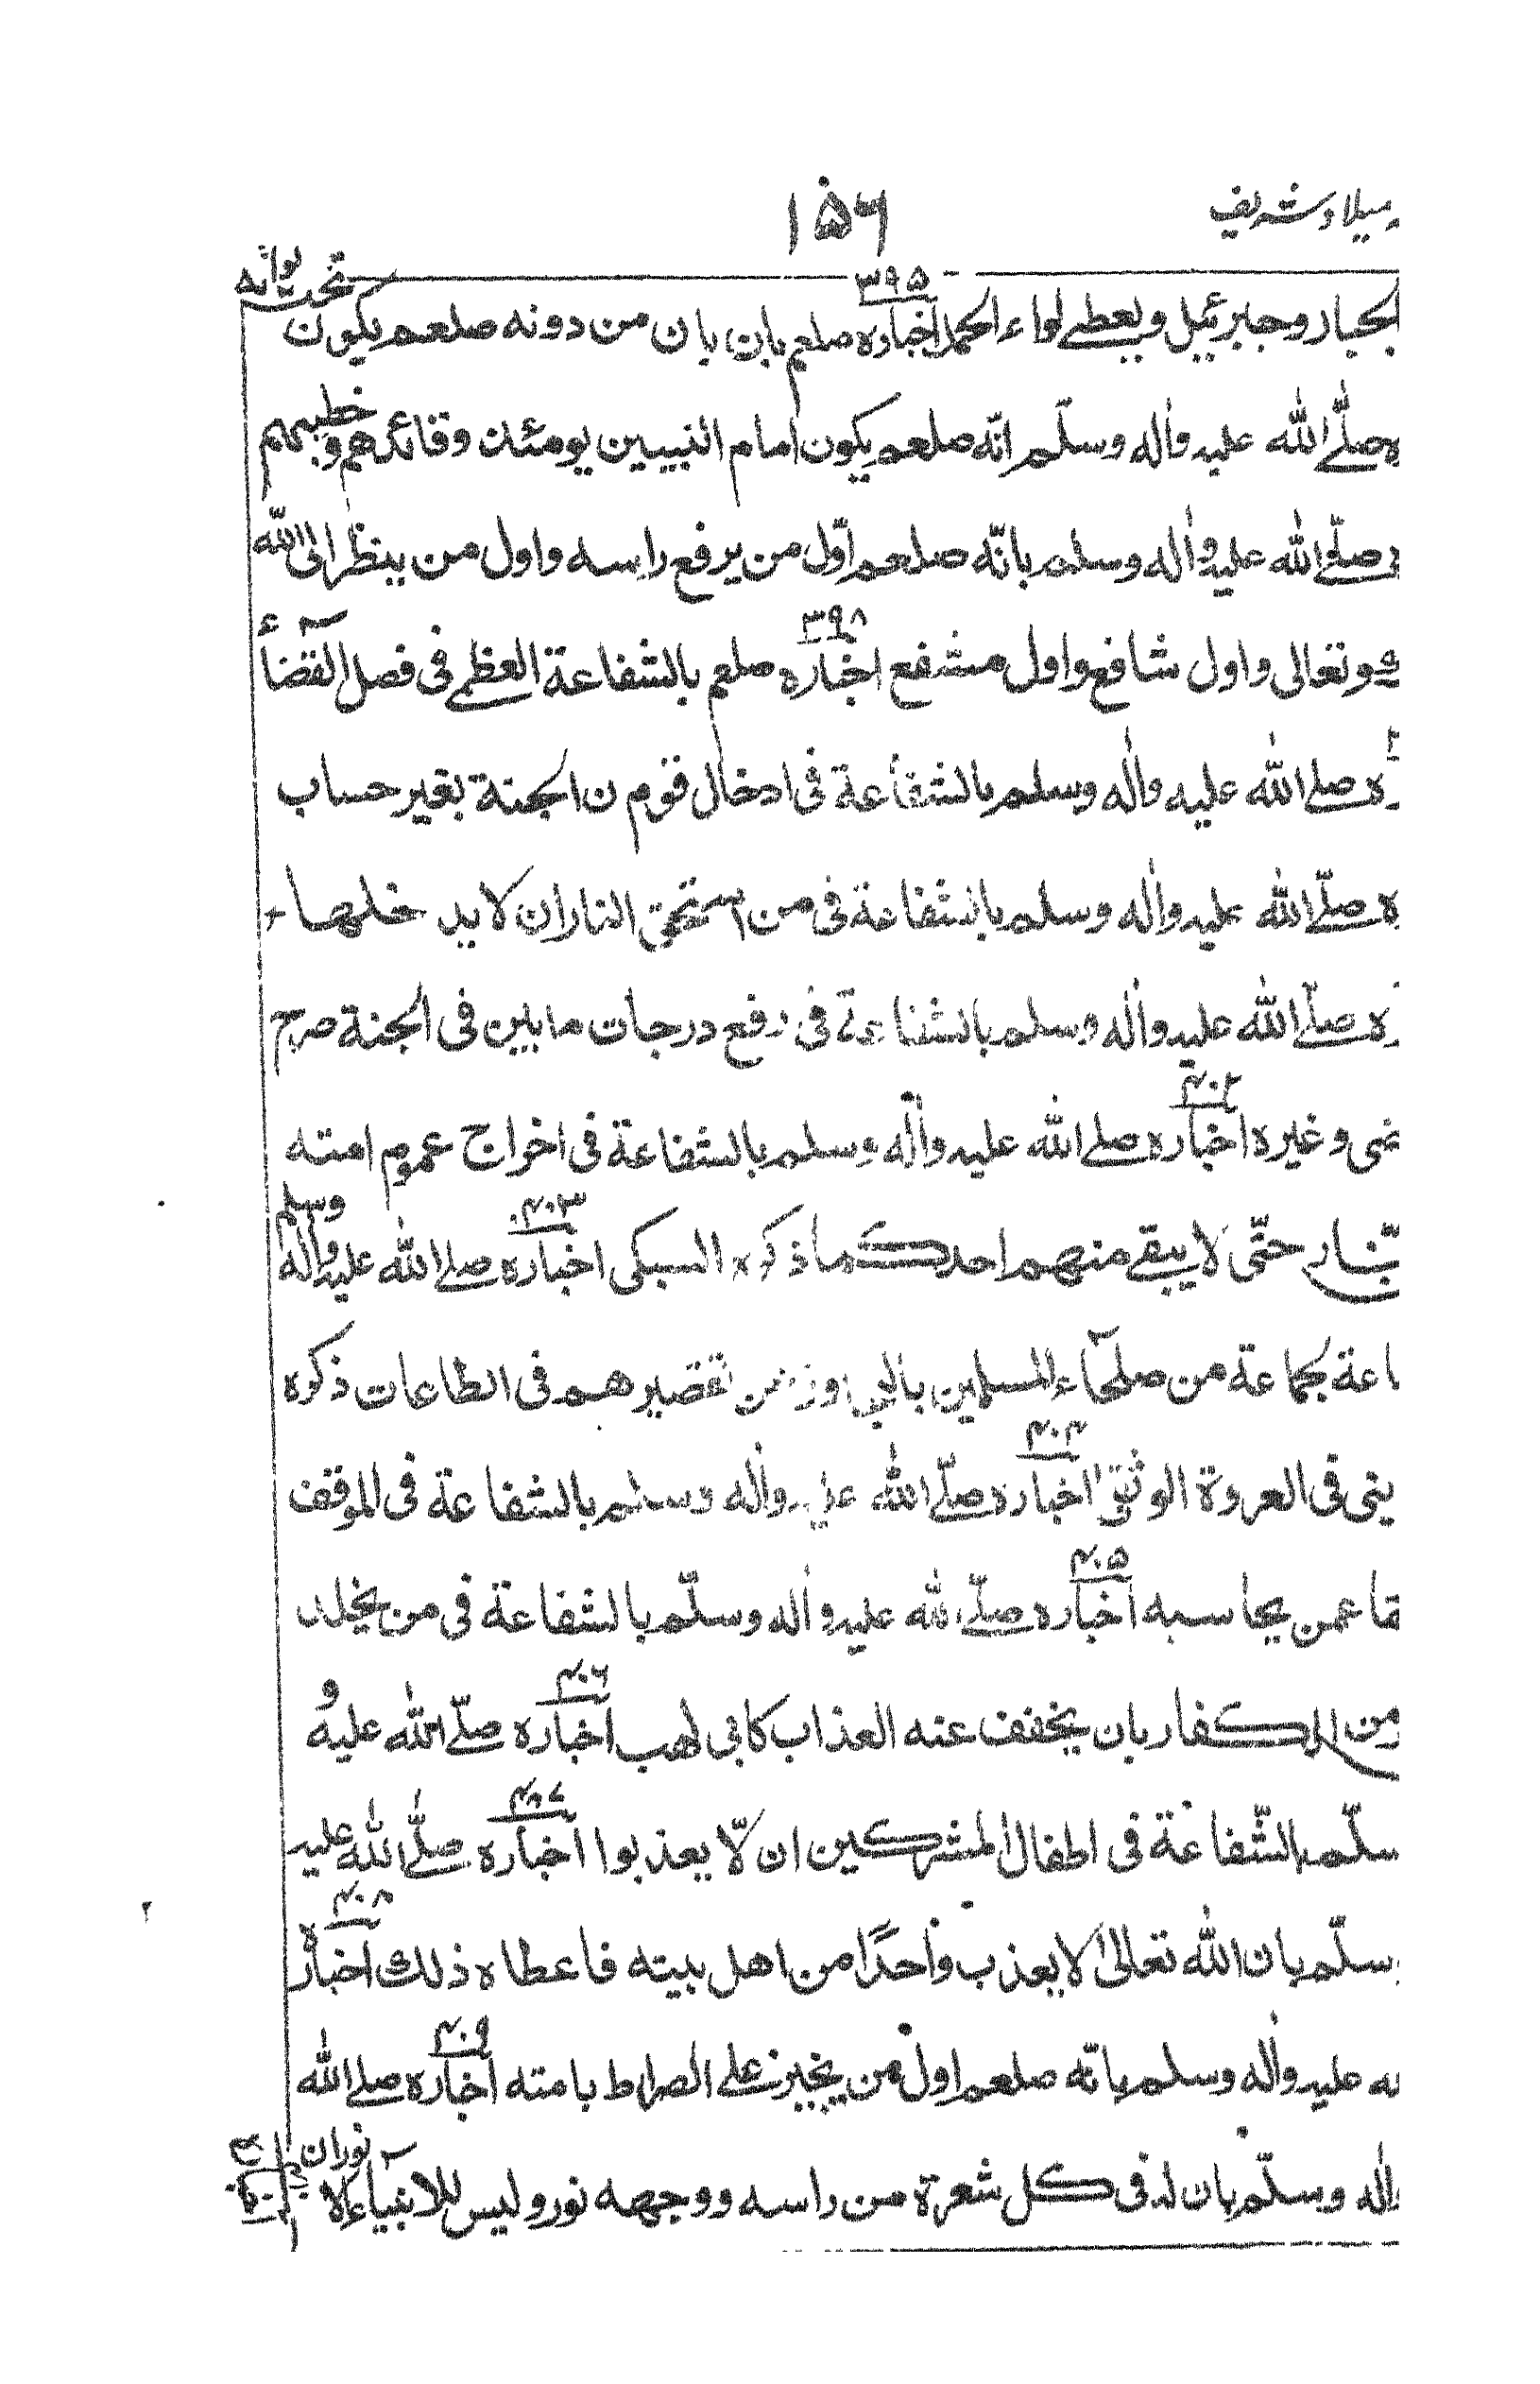 ميلاد شريف
١٥٦
الجبار وجبرئيل ويعطے لواء الحمد اخباره صلعم بان يان من دونه صلعم يكون تحت لوائه
٣٩٥
ه صلّے الله عليه واٰله وسلّم انّه صلعم يكون امام النبيين يومئذ وقائدهم وخطيبهم
صلّے الله عليه واٰله وسلم بانّه صلعم اوّل من يرفع راسه واول من ينظر الى اللّه
وتعالى واول شافع واول مشفع اخباره صلعم بالشفاعة العظمے فى فصل القضآء
٣٩٨
ه صلے الله عليه واٰله وسلم بالشفاعة فى ادخال قوم ن الجنة بغير حساب
ه صلّے الله عليه واٰله وسلم بالشفاعة فى من استحق النار ان لا يد خلها
ه صلّے الله عليه واٰله وسلم بالشفاعة فى رفع درجات ما بين فى الجنة صرح
وغيره اخباره صلے الله عليه واٰله وسلم بالشفاعة فى اخراج عموم امته
٤٠٢
حتّى لا يبقے منهم احد كما ذكره السبكى اخباره صلے الله عليه واٰله وسلم
٤٠٣
بجماعة من صلحآء المسلمين تقصيرهم فى الطاعات ذكره
فى العروة الوثقىٰ اخباره صلّے الله عليه واٰله وسلم بالشفاعة فى الموقف
٤٠٤
عمن يحاسبه اخباره صلّے الله عليه واٰله وسلّم بالشفاعة فى من يخلد
٤٠٥
من الكفار بان يخفف عنه العذاب كابى لهب اخباره صلّے الله عليه و
٤٠٦
سلّم بالشّفاعة فى اطفال المشركين ان لّا يعذبوا اخباره صلّے الله عليه
٤٠٧
وسلّم بان الله تعالىٰ لا يعذب واحدًا من اهل بيته فاعطاه ذلك اخباره
٤٠٨
عليه واٰله وسلم بانّه صلعم اول من يجيز على الصراط بامته اخباره صلے الله
٤٠٩
واٰله وسلّم بان له فى كل شعرة من راسه ووجهه نور وليس للانبيآء الا نوران